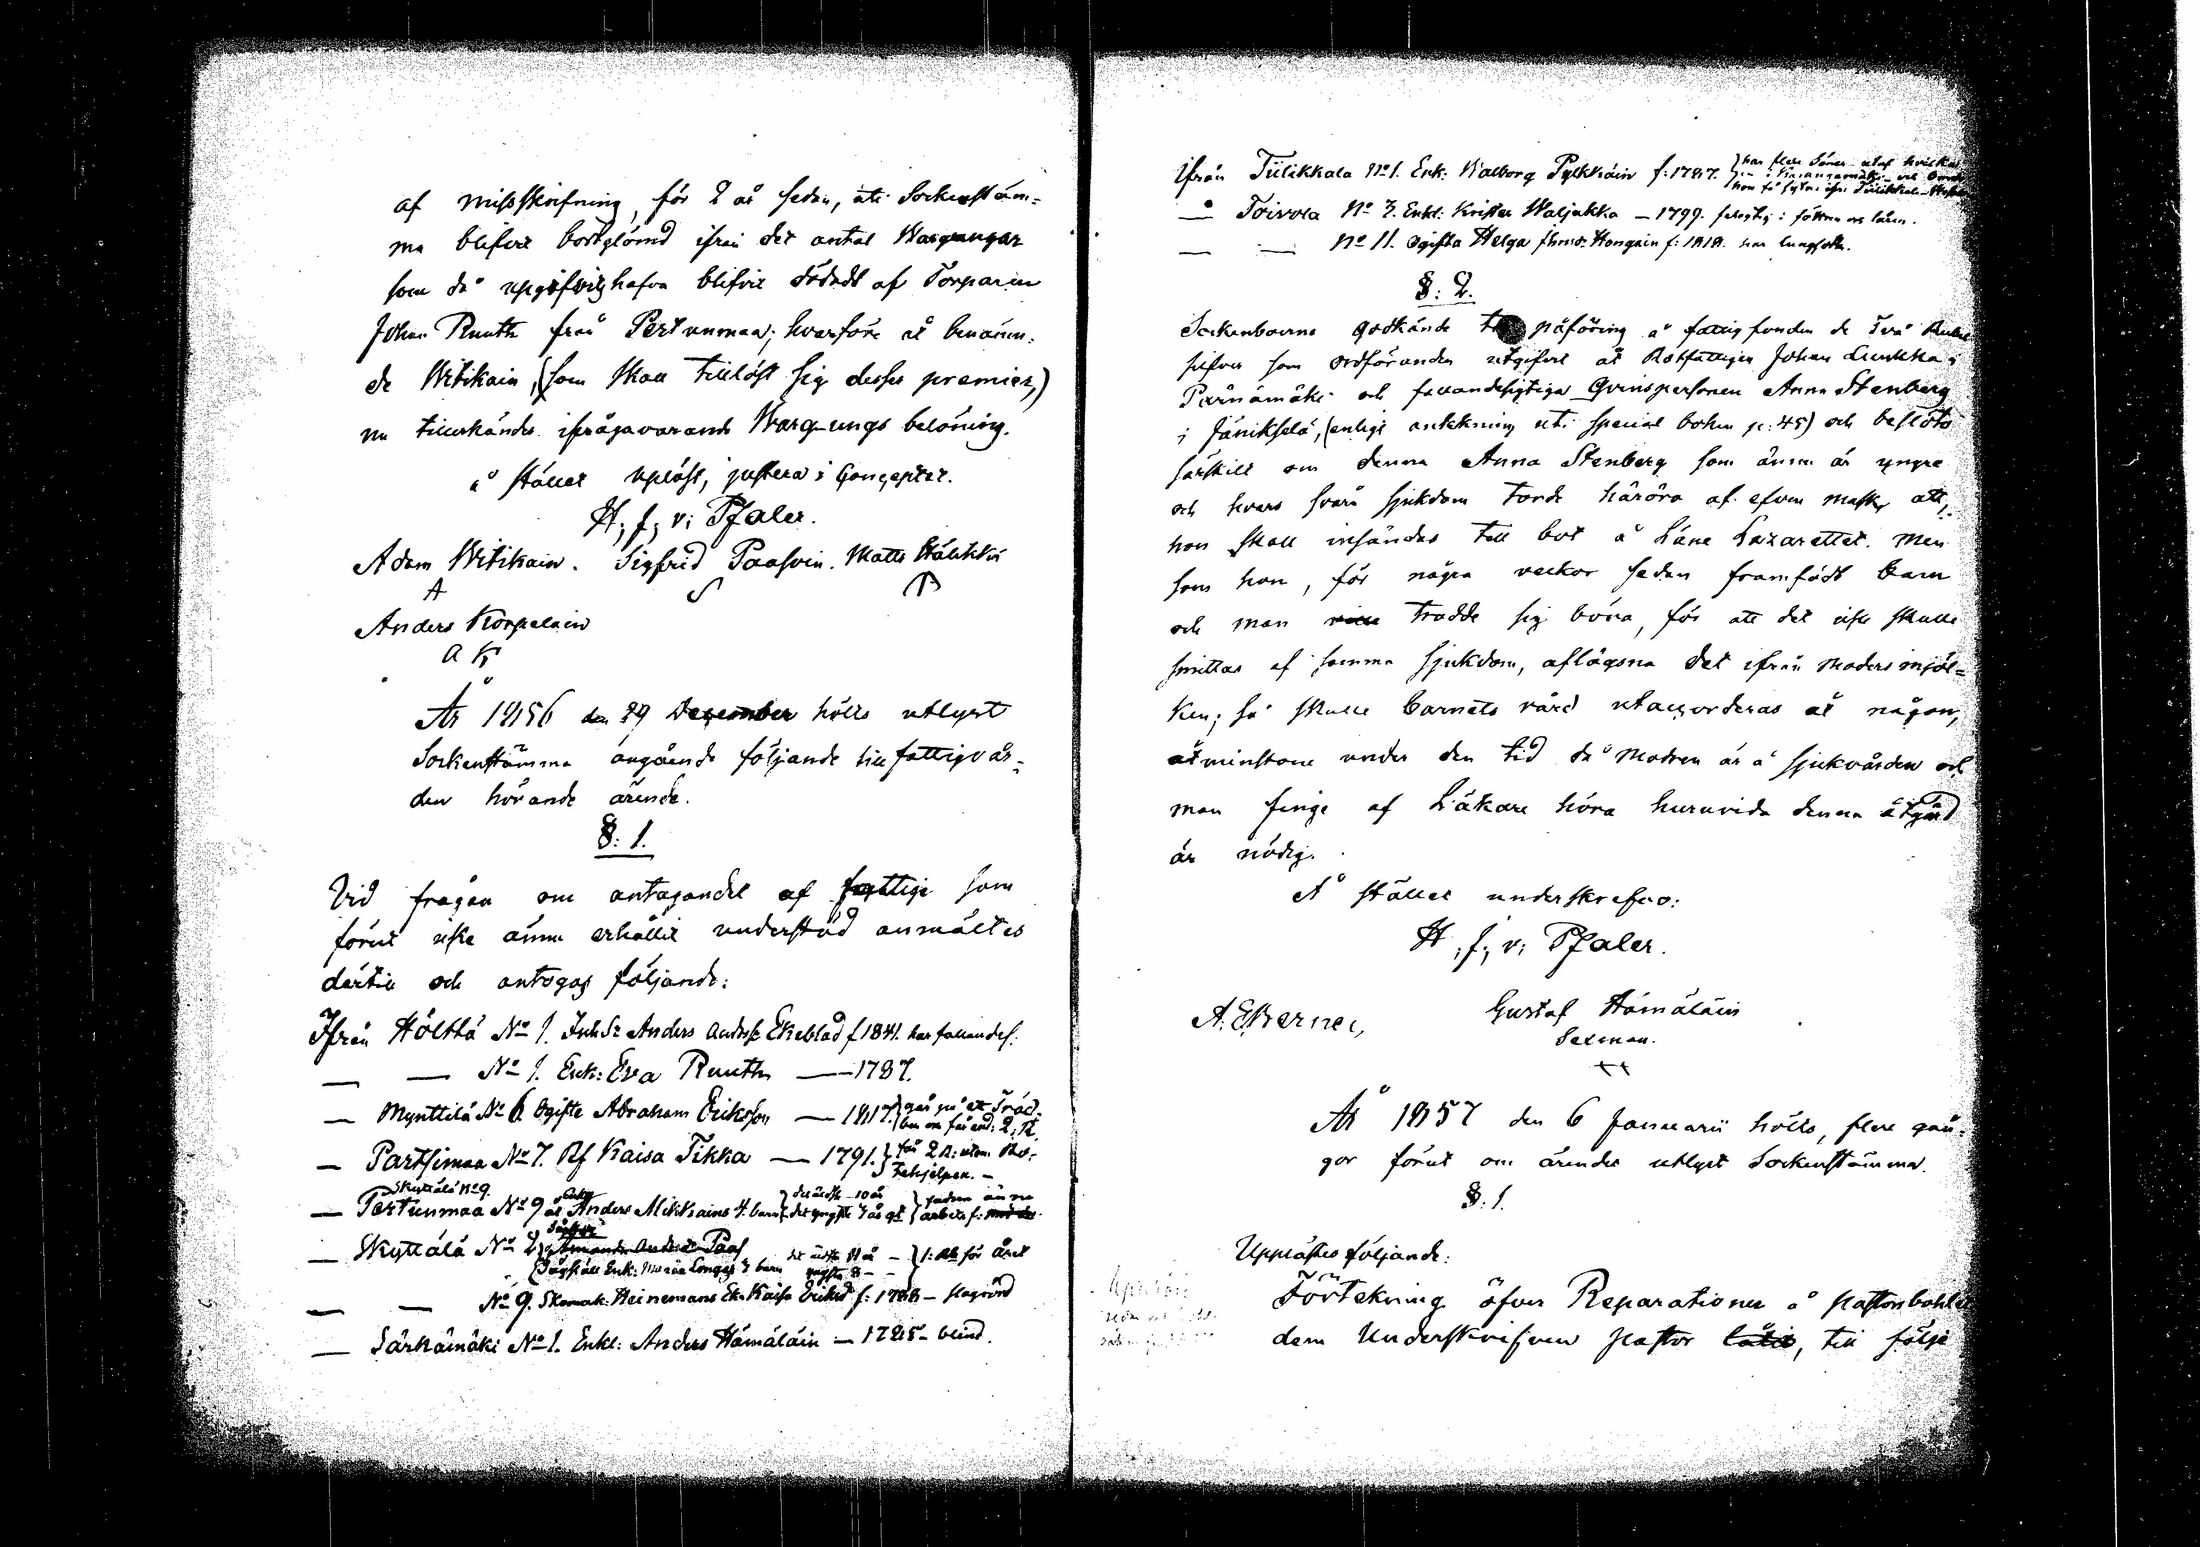 af missskrifning, för 2 år sedan, uti Sockenstäm-
ma blifvit bortglömd ifrån det antal Wargungar
som då uppgifvits hafva blifvit dödadt af Torparen
Johan Ruuth från Pertunmaa; hvarföre åt benämn-
de Witikain, (som skall tillöst sig desses premier,)
nu tillerkändes ifrågavarande Warg-ungs belöning.
å stället upläst, justera i Conceptet.
H. f. v: Pfaler.
Adam Witikain. Sigfrid Paasoin. Matts
A S
Anders Korpelain
A K
År 1856 den 29 December hölls utlyst
Sockenstämma angående följande till fattigvår-
den hörande ärende.
§: 1.
Vid frågan om antagandet af fattige som
förut icke ännu erhållit understöd anmältes
dertill och antogos följande:
Ifrån Hölttä No 1. Inh. Sr Anders Anderss. Ekeblad f 1841. har fallandes.
— — No 1. Enk: Eva Ruuth — 1787.
— Mynttilä No 6. Ogifte Abraham Eriksson — 1817. går på et Träd-
ben
— Partsimaa No 7. Rf Kaisa Tikka — 1791. får 2 R: utom Ro-
tehjelpen. —
Skyttälä No 9.
— Pertunmaa No 9 Anders Mikkains 4. barn det äldste 10 år det yngste 3 år
— Skyttälä No 2 Amanda Paas
Enk: Maria 3 barn det äldsta 11 år — 1: Rb för året
— — No 9. Skomak: Heinemans Ek. Kaisa f: 1788 — slagrörd
— Särkämäki No 1. Enkl: Anders Hämäläin — 1785 — blind.
Ifrån Tiilikkala No 1. Enk: Walborg Pylkkäin f: 1787. har flere Söner utaf hvilka
— Toivola No 3. Enkl: Krister Waljakka — 1799. i fötter och låren.
— — No 11. ogifta Helga Hongain f: 1818. har lungsott.
§: 2.
Sockenboerne godkände påföring å fattigfonden de Två Rubel
silfver som ordföranden utgifvit åt Rotfattigen Johan i
Pärnämäki och fallandesigtiga Qvinspersonen Anna Stenberg
i Jänikselä, (enligt antekning uti special boken p: 45) och beslöts
särskilt om denna Anna Stenberg som ännu är yngre
och hvars svåra sjukdom torde häröra af mask, att,
hon skall insändas till bot å Läne Lazarettet. Men
som hon, för några veckor sedan framfödt barn
och man trodde sig böra, för att det icke skulle
smittas af samma sjukdom, aflägsna det ifrån moders mjöl-
ken; så skulle barnets vård utackorderas åt någon,
åtminstone under den tid då modren är å sjukvården och
man finge af Läkare höra huruvida denna åtgärd
är nödig.
Å stället underskrefvo:
H. f. v: Pfaler.
Gustaf Hämäläin
A. E. Berner,
Sexman.
++
År 1857 den 6 Januarii hölls, flere gån-
gor förut om ärendet utlyst Sockenstämma.
§: 1.
Upplästes följande:
Förtekning öfver Reparationer å pastorsbohle
dem Underskrifven pastor låtit, till följe